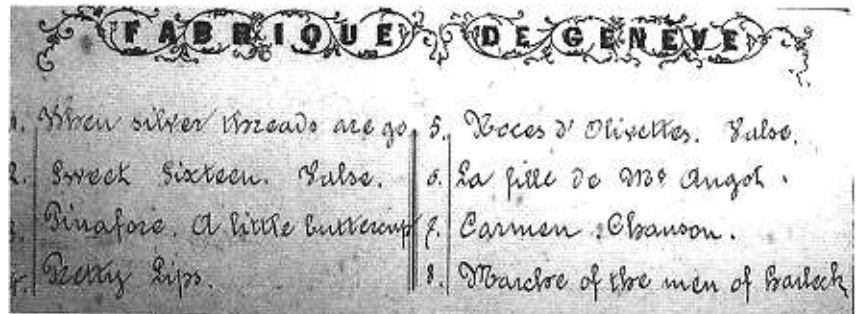 FABRIQUE DE GENÈVE
1. When silver threads are go.
2. Sweet Sixteen. Valse.
3. Pinafore. A little buttercup
4. Pretty Lips.
5. Noces d'Olivettes. Valse.
6. La fille de Me Angot.
7. Carmen. Chanson.
8. Marche of the men of harleck